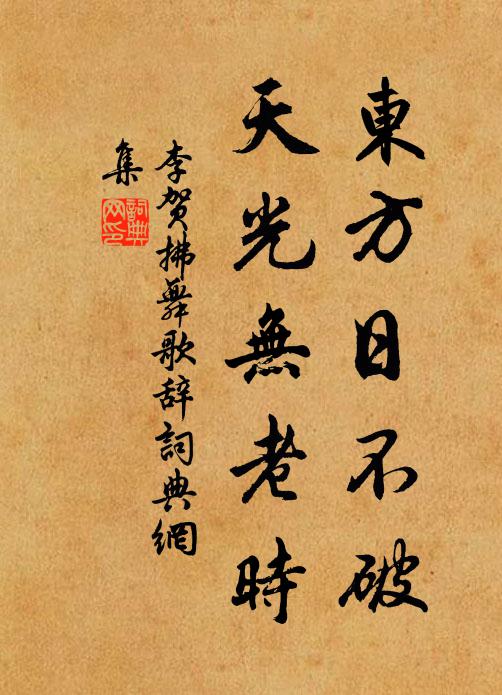 東方日不破
天光無老時
李賀拂舞歌辞詞典網
集
詞典
网印